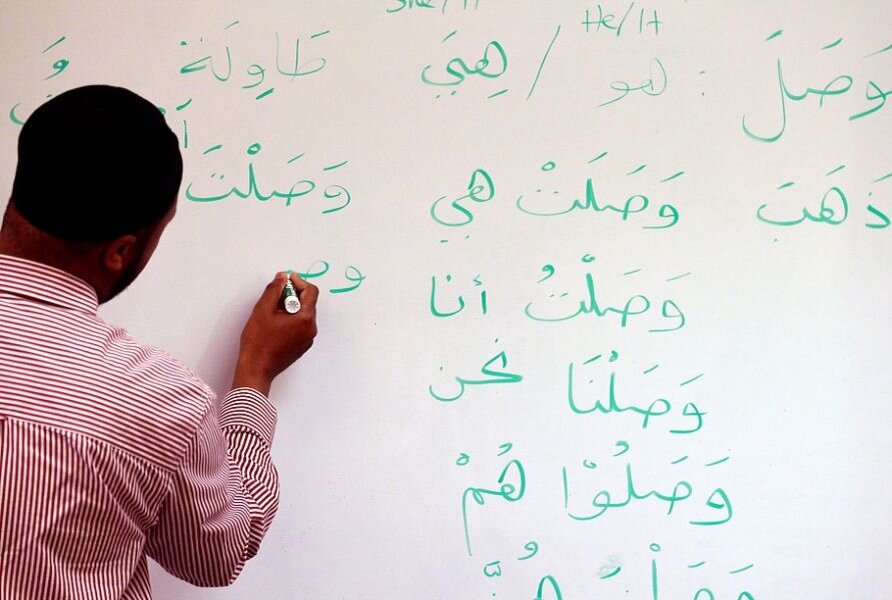 She/It He/It
وَصَلَ : هو / هِيَ طَاوِلَة
ذَهَبَ وَصَلَتْ هي وَصَلْتَ
وَصَلْتُ أنا وص
وَصَلْنَا نحن
وَصَلُوْا هُمْ
هُنَّ